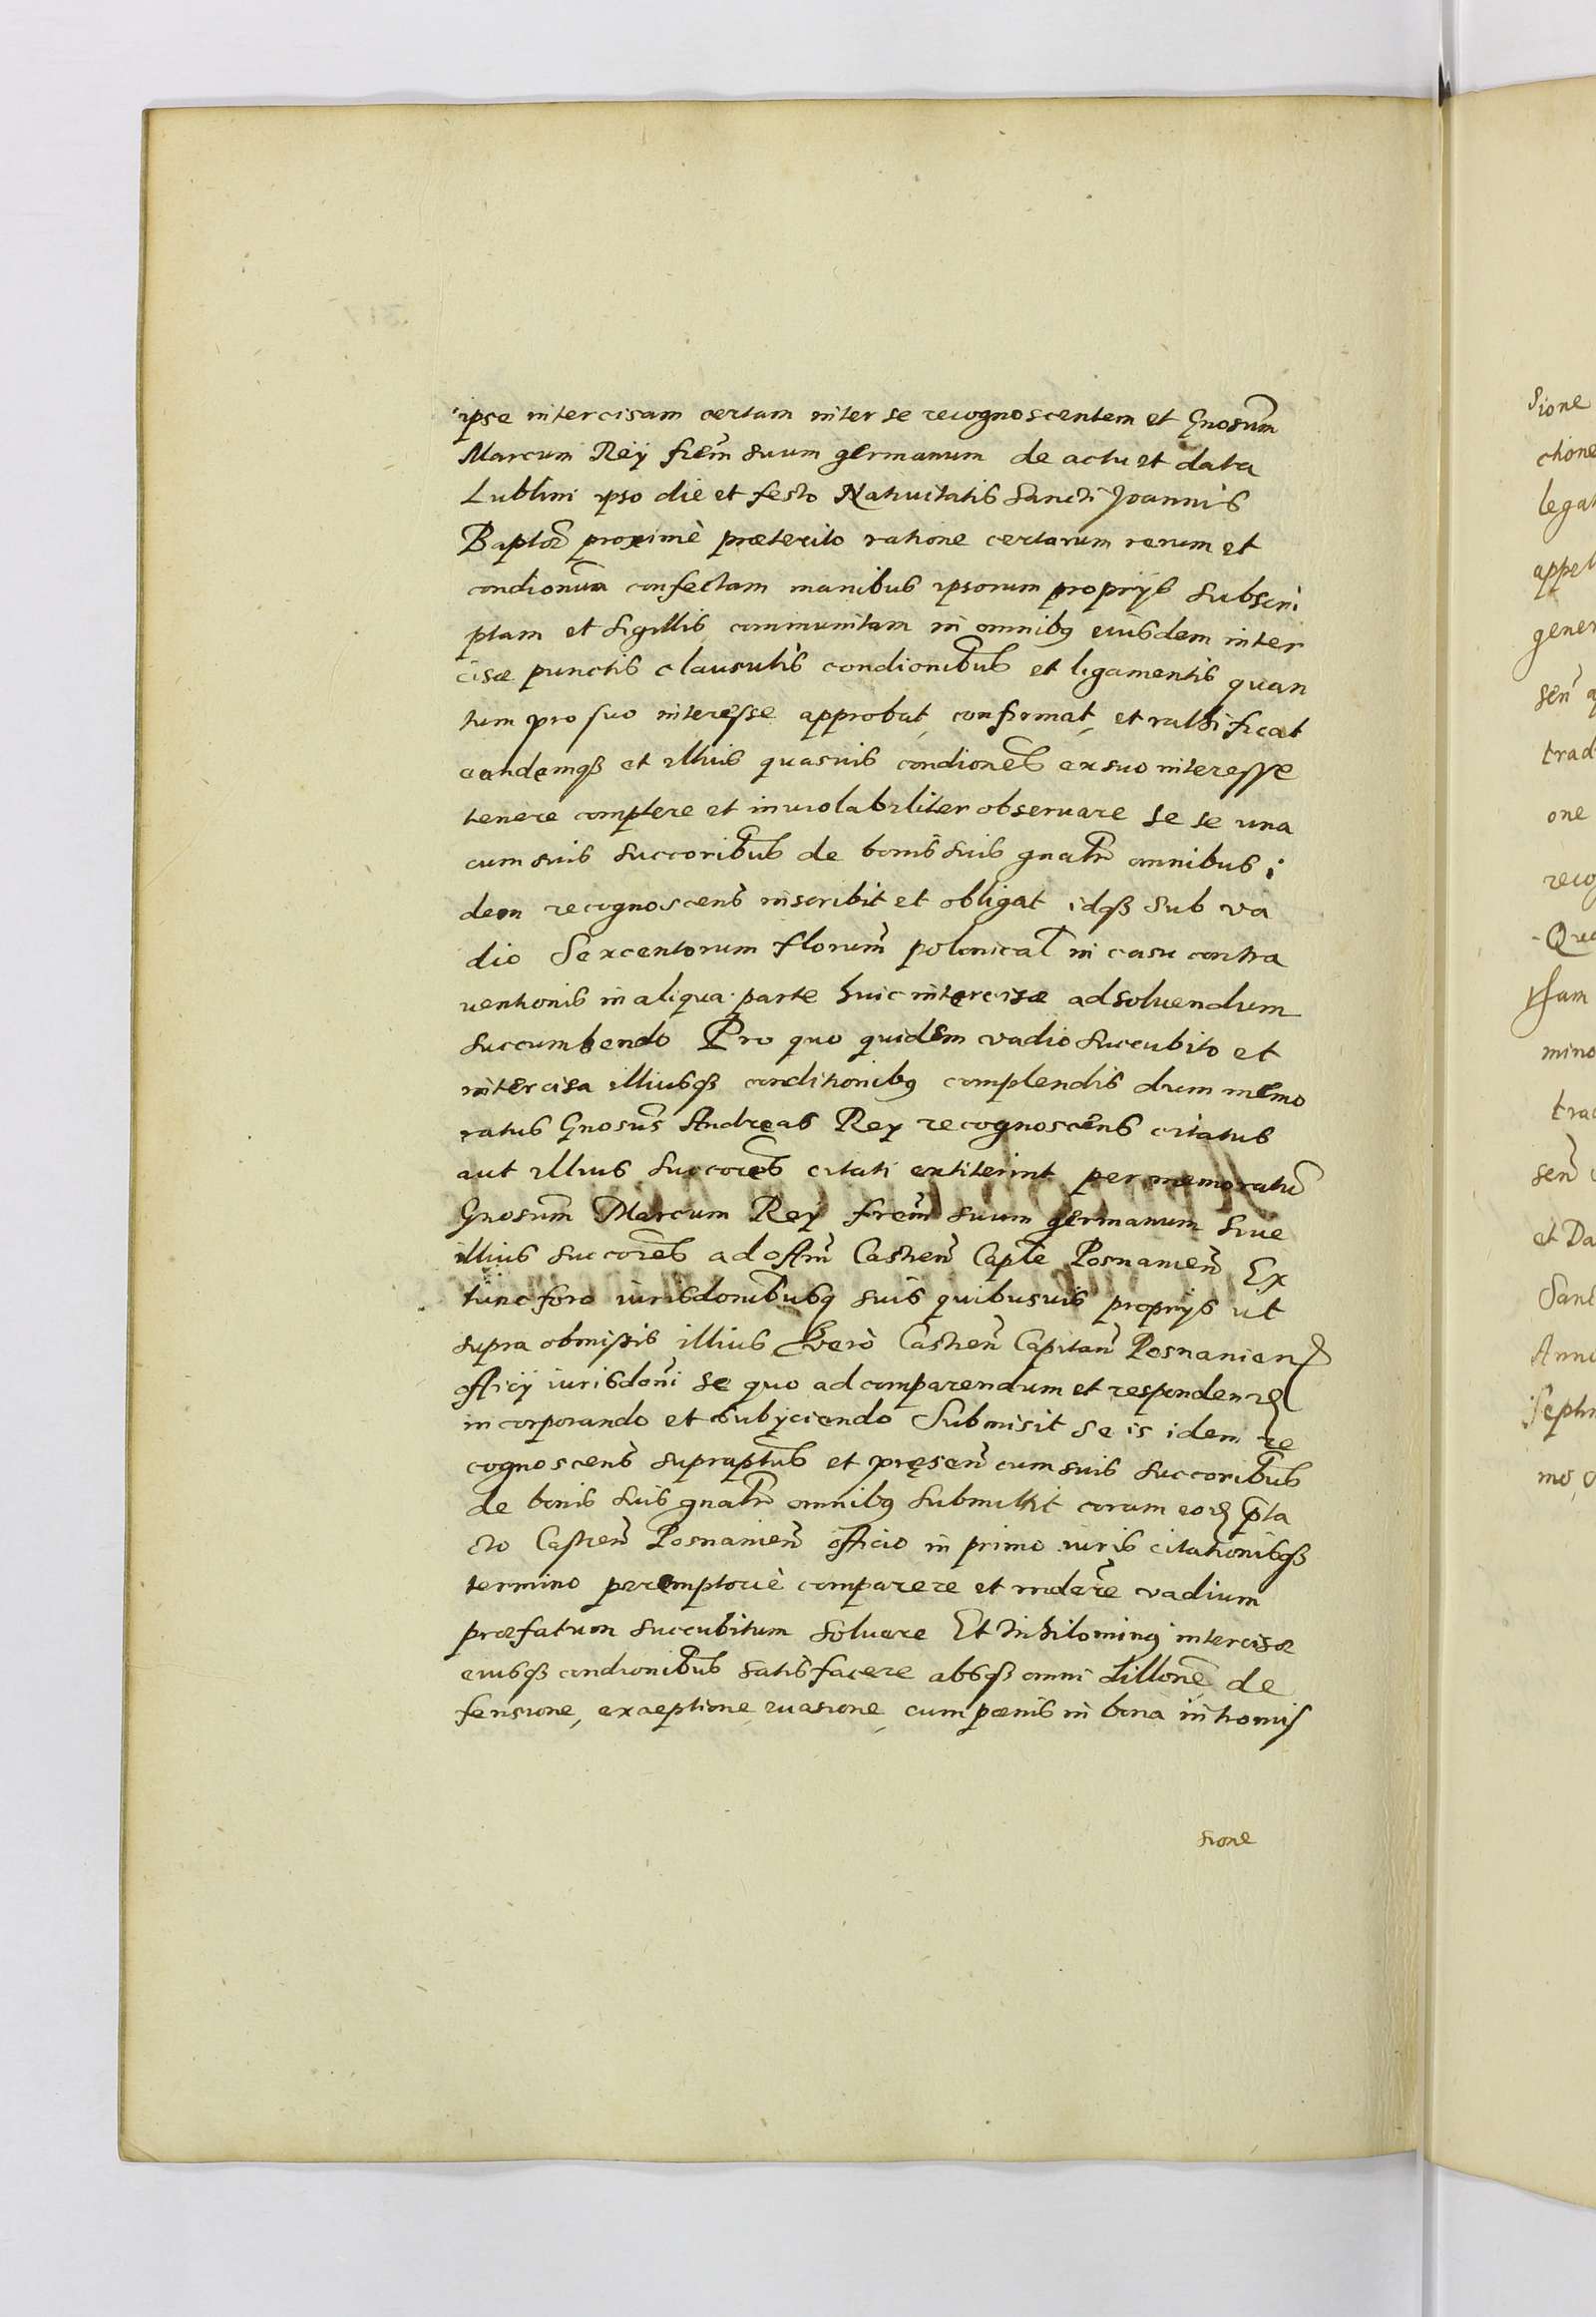 ipse intercisam certam inter se recognoscentem et Gnosum
Marcum Reÿ frem suum germanum de actu et data
Lublini ipso die et festo Natiuitatis Sancti Joannis
Baptæ proximè præterito ratione certarum rerum et
condionum confectam manibus ipsorum proprijs subscri
ptam et sigillis communitam in omnibq eiusdem inter
cisæ punctis clausulis condionibus et ligamentis quan
tum pro suo interesse approbat, confirmat, et ratificat
eandemqꝫ et illius quasuis condiones ex suo interesse
tenere complere et inuiolabiliter obseruare se se una
cum suis succoribus de bonis suis gnalr omnibus i
dem recognoscens inscribit et obligat idqꝫ sub va
dio Sexcentorum florum polonical in casu contra
uentionis in aliqua parte huic intercisæ ad soluendum
succumbendo Pro quo quidem vadio succubito et
intercisa illiusqꝫ conditionibq complendis dum memo
ratus Gnosus Andreas Rey recognoscens citatus
aut illius succores citati extiterint per memoratu
Gnosum Marcum Reÿ frem suum germanum siue
illius succores ad offm Castren Caple Posnanien Ex
tunc foro iurisdonibusq suis quibusuis proprijs ut
supra obmissis illius verò Castren Capitan Posnanien
officij iurisdoni se quo ad comparendum et responden
incorporando et subijciendo Submisit se is idem re
cognoscens supraptus et præsen cum suis succoribus
de bonis suis gnalr omnibq submittit coram eod pta
cto Castren Posnanien officio in primo iuris citationisqꝫ
termino peremptoriè comparere et rndere vadium
præfatum succubitum soluere Et nihilominq intercisæ
eiusqꝫ condionibus satisfacere absqꝫ omni dillone de
fensione, exceptione euasione, cum pœnis in bona intromis
sione
Sione
chone
legat
appel
gener
sen
trad
one
recog
Quo
mino
trad
sen
et Da
Sanc
Anno
Septi
mo,